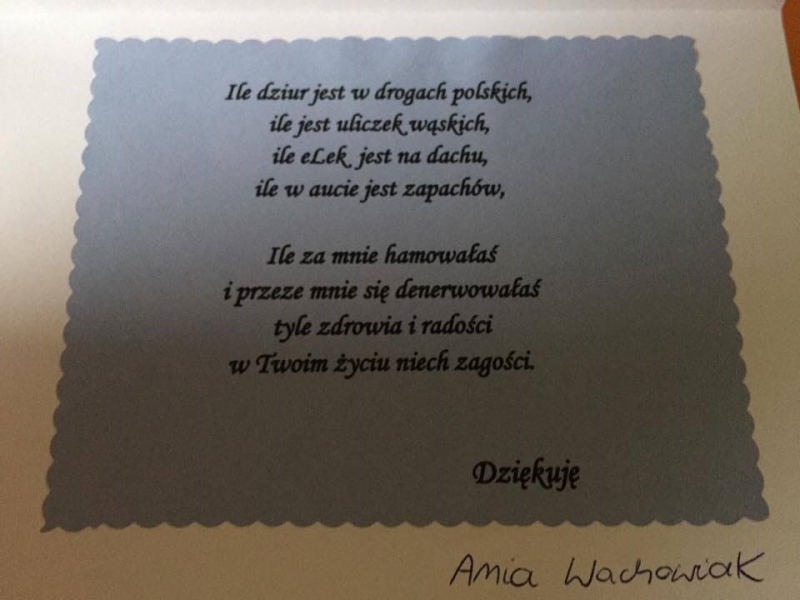 Ile dziur jest w drogach polskich,
ile jest uliczek wąskich,
ile eLek jest na dachu,
ile w aucie jest zapachów,
Ile za mnie hamowałaś
i przeze mnie się denerwowałaś
tyle zdrowia i radości
w Twoim życiu niech zagości.
Dziękuję
Ania Wachowiak